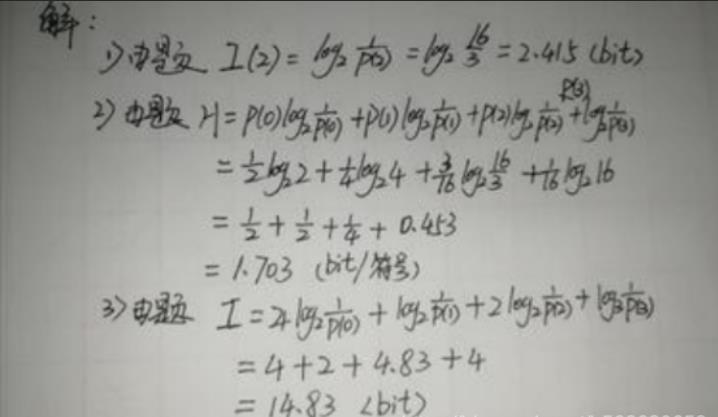 解:
1) 由题意 I(2) = log₂ 1/P(2) = log₂ 16/3 = 2.415 (bit)
2) 由题意 H = P(0)log₂ 1/P(0) + P(1)log₂ 1/P(1) + P(2)log₂ 1/P(2) + P(3)log₂ 1/P(3)
= 1/2 log₂2 + 1/4 log₂4 + 3/16 log₂ 16/3 + 1/16 log₂16
= 1/2 + 1/2 + 1/4 + 0.453
= 1.703 (bit/符号)
3) 由题意 I = 4log₂ 1/P(0) + log₂ 1/P(1) + 2log₂ 1/P(2) + log₂ 1/P(3)
= 4 + 2 + 4.83 + 4
= 14.83 (bit)